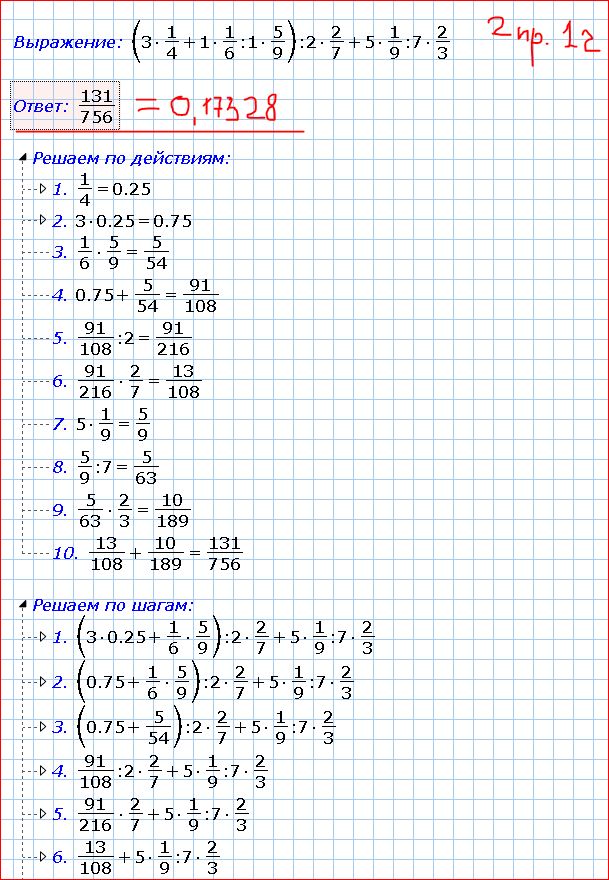 Выражение: (3·1/4+1·1/6:1·5/9):2·2/7+5·1/9:7·2/3
2 пр. 12
Ответ: 131/756 = 0,17328
Решаем по действиям:
1. 1/4=0.25
2. 3·0.25=0.75
3. 1/6·5/9=5/54
4. 0.75+5/54=91/108
5. 91/108:2=91/216
6. 91/216·2/7=13/108
7. 5·1/9=5/9
8. 5/9:7=5/63
9. 5/63·2/3=10/189
10. 13/108+10/189=131/756
Решаем по шагам:
1. (3·0.25+1/6·5/9):2·2/7+5·1/9:7·2/3
2. (0.75+1/6·5/9):2·2/7+5·1/9:7·2/3
3. (0.75+5/54):2·2/7+5·1/9:7·2/3
4. 91/108:2·2/7+5·1/9:7·2/3
5. 91/216·2/7+5·1/9:7·2/3
6. 13/108+5·1/9:7·2/3